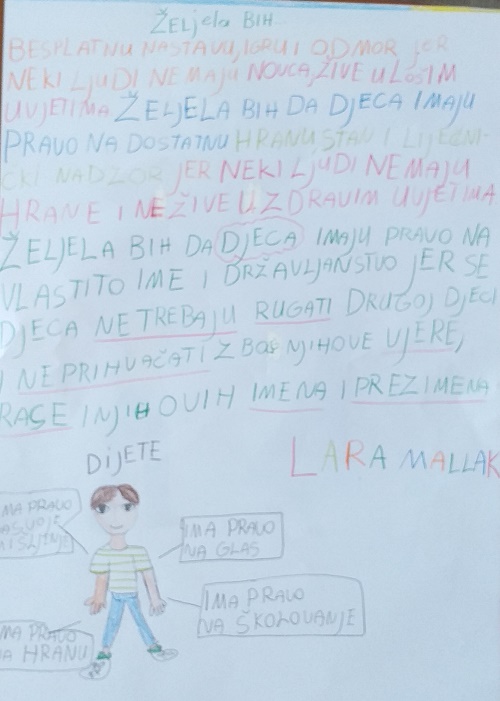 ŽELJELA BIH...
BESPLATNU NASTAVU, IGRU I ODMOR JER
NEKI LJUDI NEMAJU NOVCA, ŽIVE U LOŠIM
UVJETIMA ŽELJELA BIH DA DJECA IMAJU
PRAVO NA DOSTATNU HRANU STAN I LIJEČNI-
ČKI NADZOR JER NEKI LJUDI NEMAJU
HRANE I NE ŽIVE U ZDRAVIM UVJETIMA
ŽELJELA BIH DA DJECA IMAJU PRAVO NA
VLASTITO IME I DRŽAVLJANSTVO JER SE
DJECA NE TREBAJU RUGATI DRUGOJ DJECI
I NE PRIHVAČATI ZBOG NJIHOVE VJERE,
RASE I NJIHOVIH IMENA I PREZIMENA
LARA MALLAK
DIJETE
IMA PRAVO
NA SVOJE
MIŠLJENJE
IMA PRAVO
NA GLAS
IMA PRAVO
NA ŠKOLOVANJE
IMA PRAVO
NA HRANU